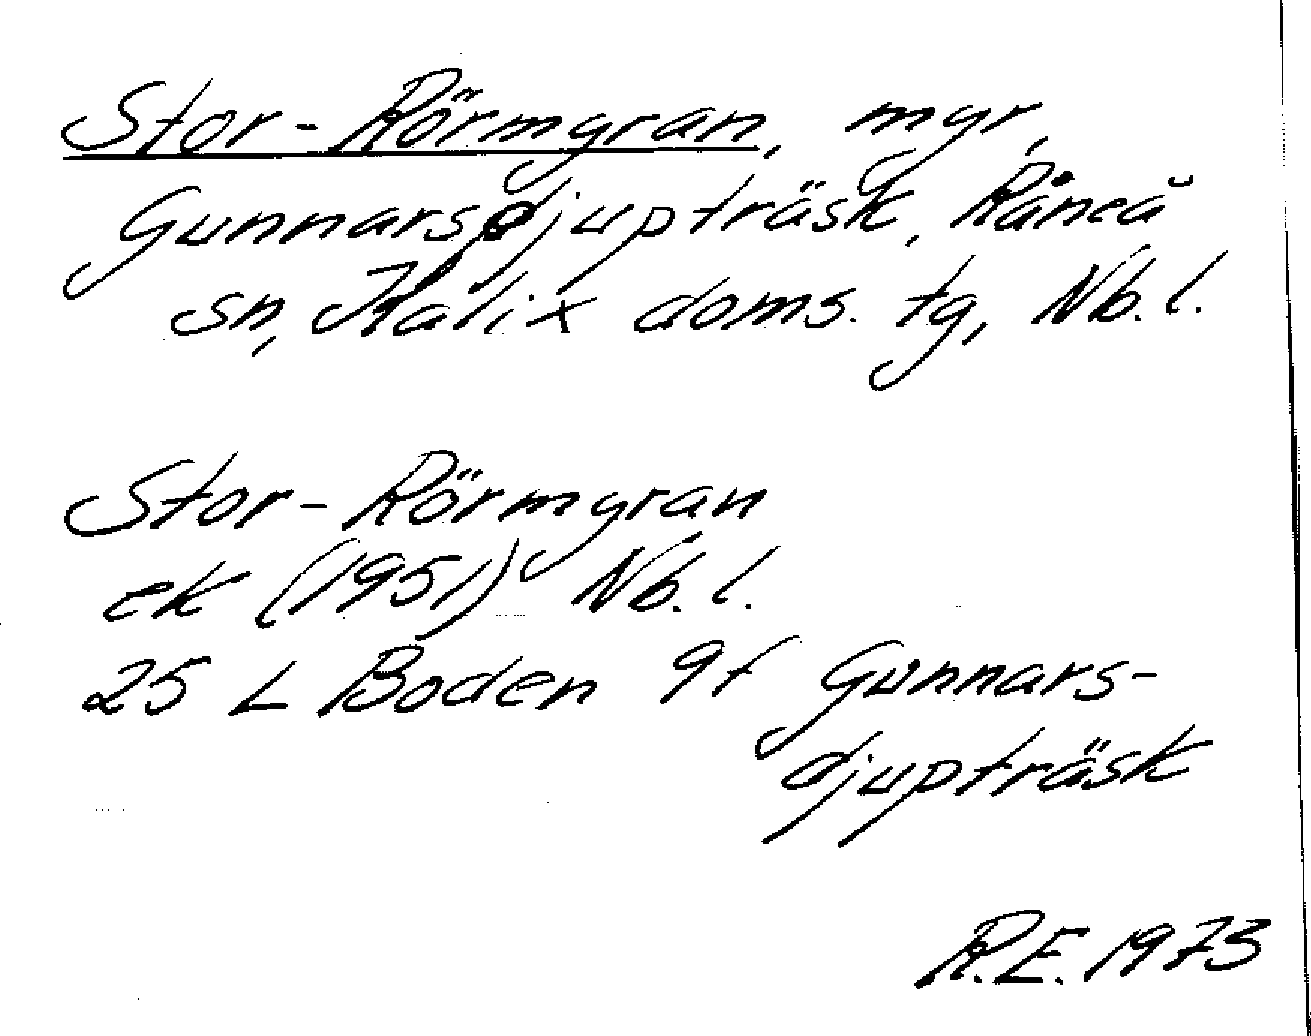 Stor-Rörmyran, myr,
Gunnarsdjupträsk, Råneå
sn, Kalix doms. tg, Nb. l.
Stor-Rörmyran
ek (1951) Nb. l.
25 L Boden 9f Gunnars-
djupträsk
R.E. 1973